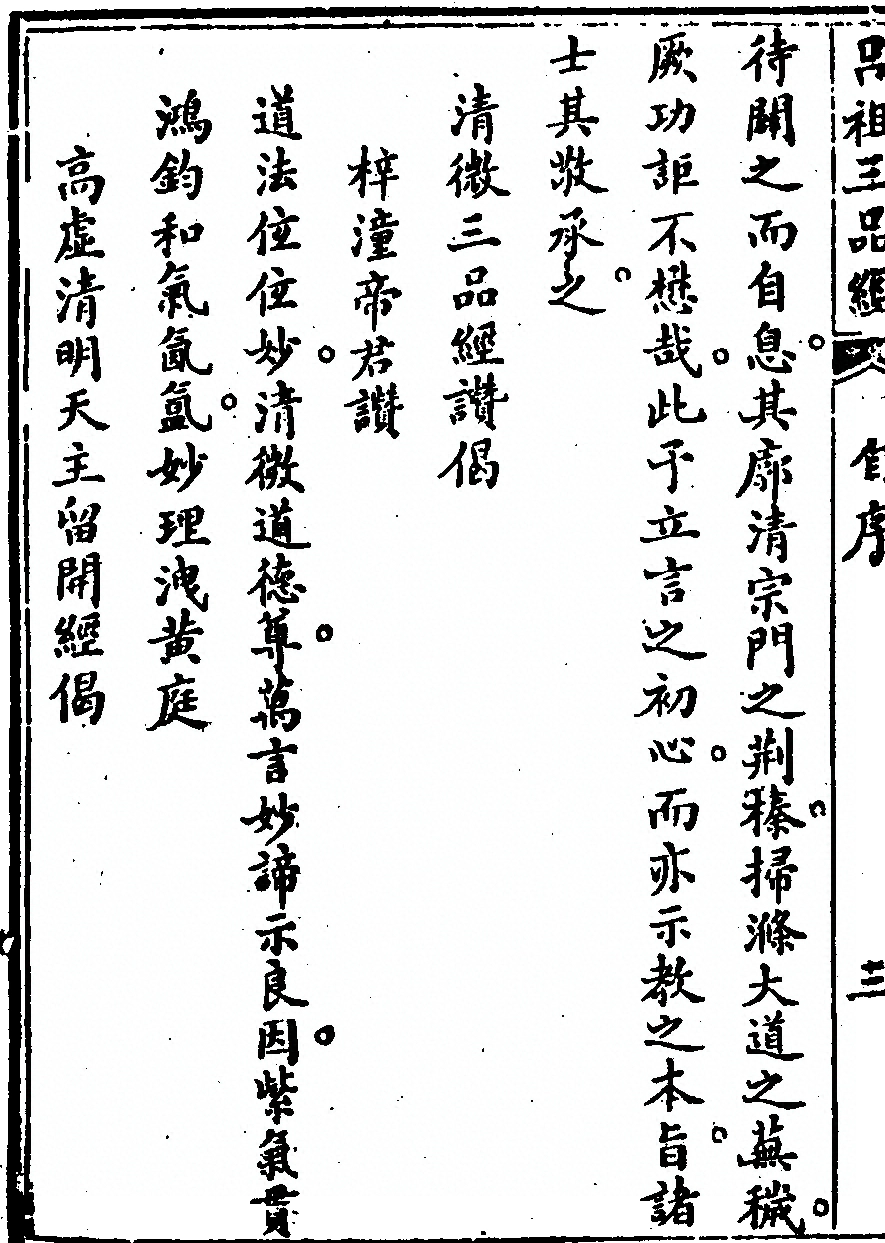 呂祖三品經 自序 三
待闢之而自息。其廓清宗門之荆榛。掃滌大道之蕪穢。
厥功詎不懋哉。此予立言之初心。而亦示教之本旨。諸
士其敬承之。
清微三品經讚偈
梓潼帝君讚
道法位位妙。清微道德尊。萬言妙諦示良因。紫氣貫
鴻鈞和氣氤氳。妙理洩黃庭
高虛清明天主留開經偈